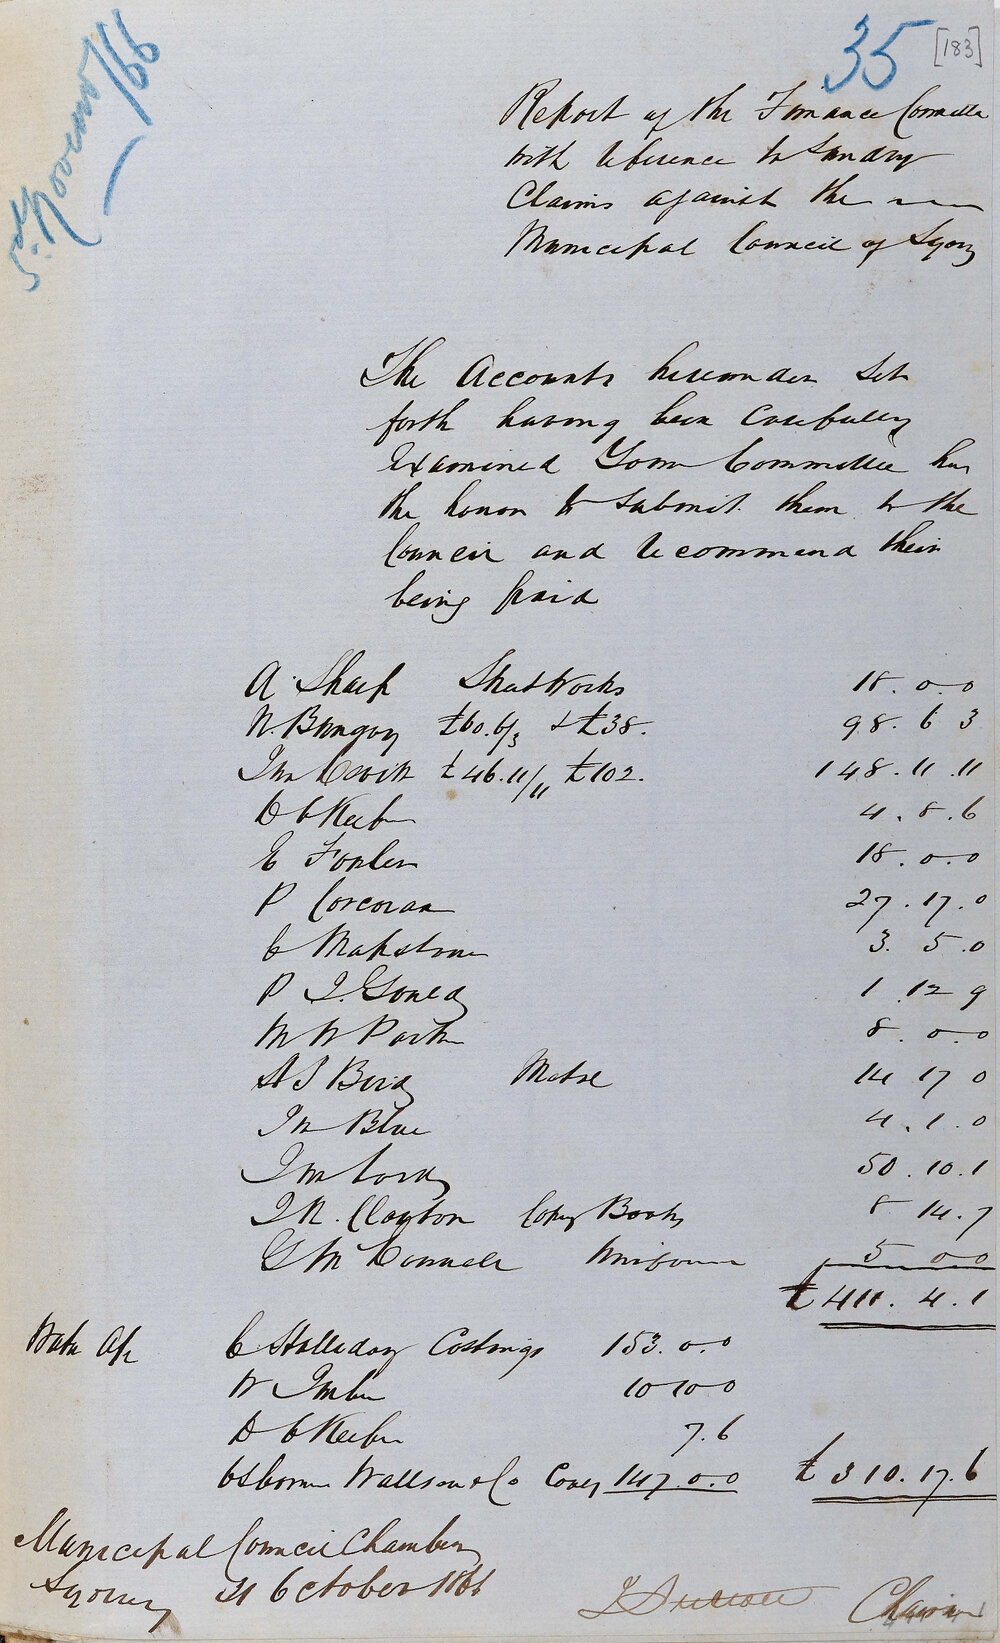 5th November/66
35 [183]
Report of the Finance Committee
with reference to Sundry
Claims against the
Municipal Council of Sydney
The Accounts hereunder set
forth having been carefully
Examined Your Committee has
the honor to submit them to the
Council and recommend their
being paid
A. Sharp Street Works 18. 0. 0
N. £60.6/3 + £38. 98. 6 3
Jno £46.11/11 £102. 148. 11. 11
4. 8. 6
E Fowler 18. 0. 0
P Corcoran 27. 17. 0
3. 5. 0
P J. Gould 1. 12 9
8. 0. 0
Bird 14 17 0
Jn Blue 4. 1. 0
50. 10. 1
J R. Clayton Copy Books 8 14. 7
G McConnell Uniform 5 0 0
£411. 4. 1
Water A/c C Halliday Castings 153. 0. 0
10 10 0
7. 6
Osborne Wallson & Co 147. 0. 0 £310. 17. 6
Municipal Council Chamber
Sydney 31 October 1866
Chairman